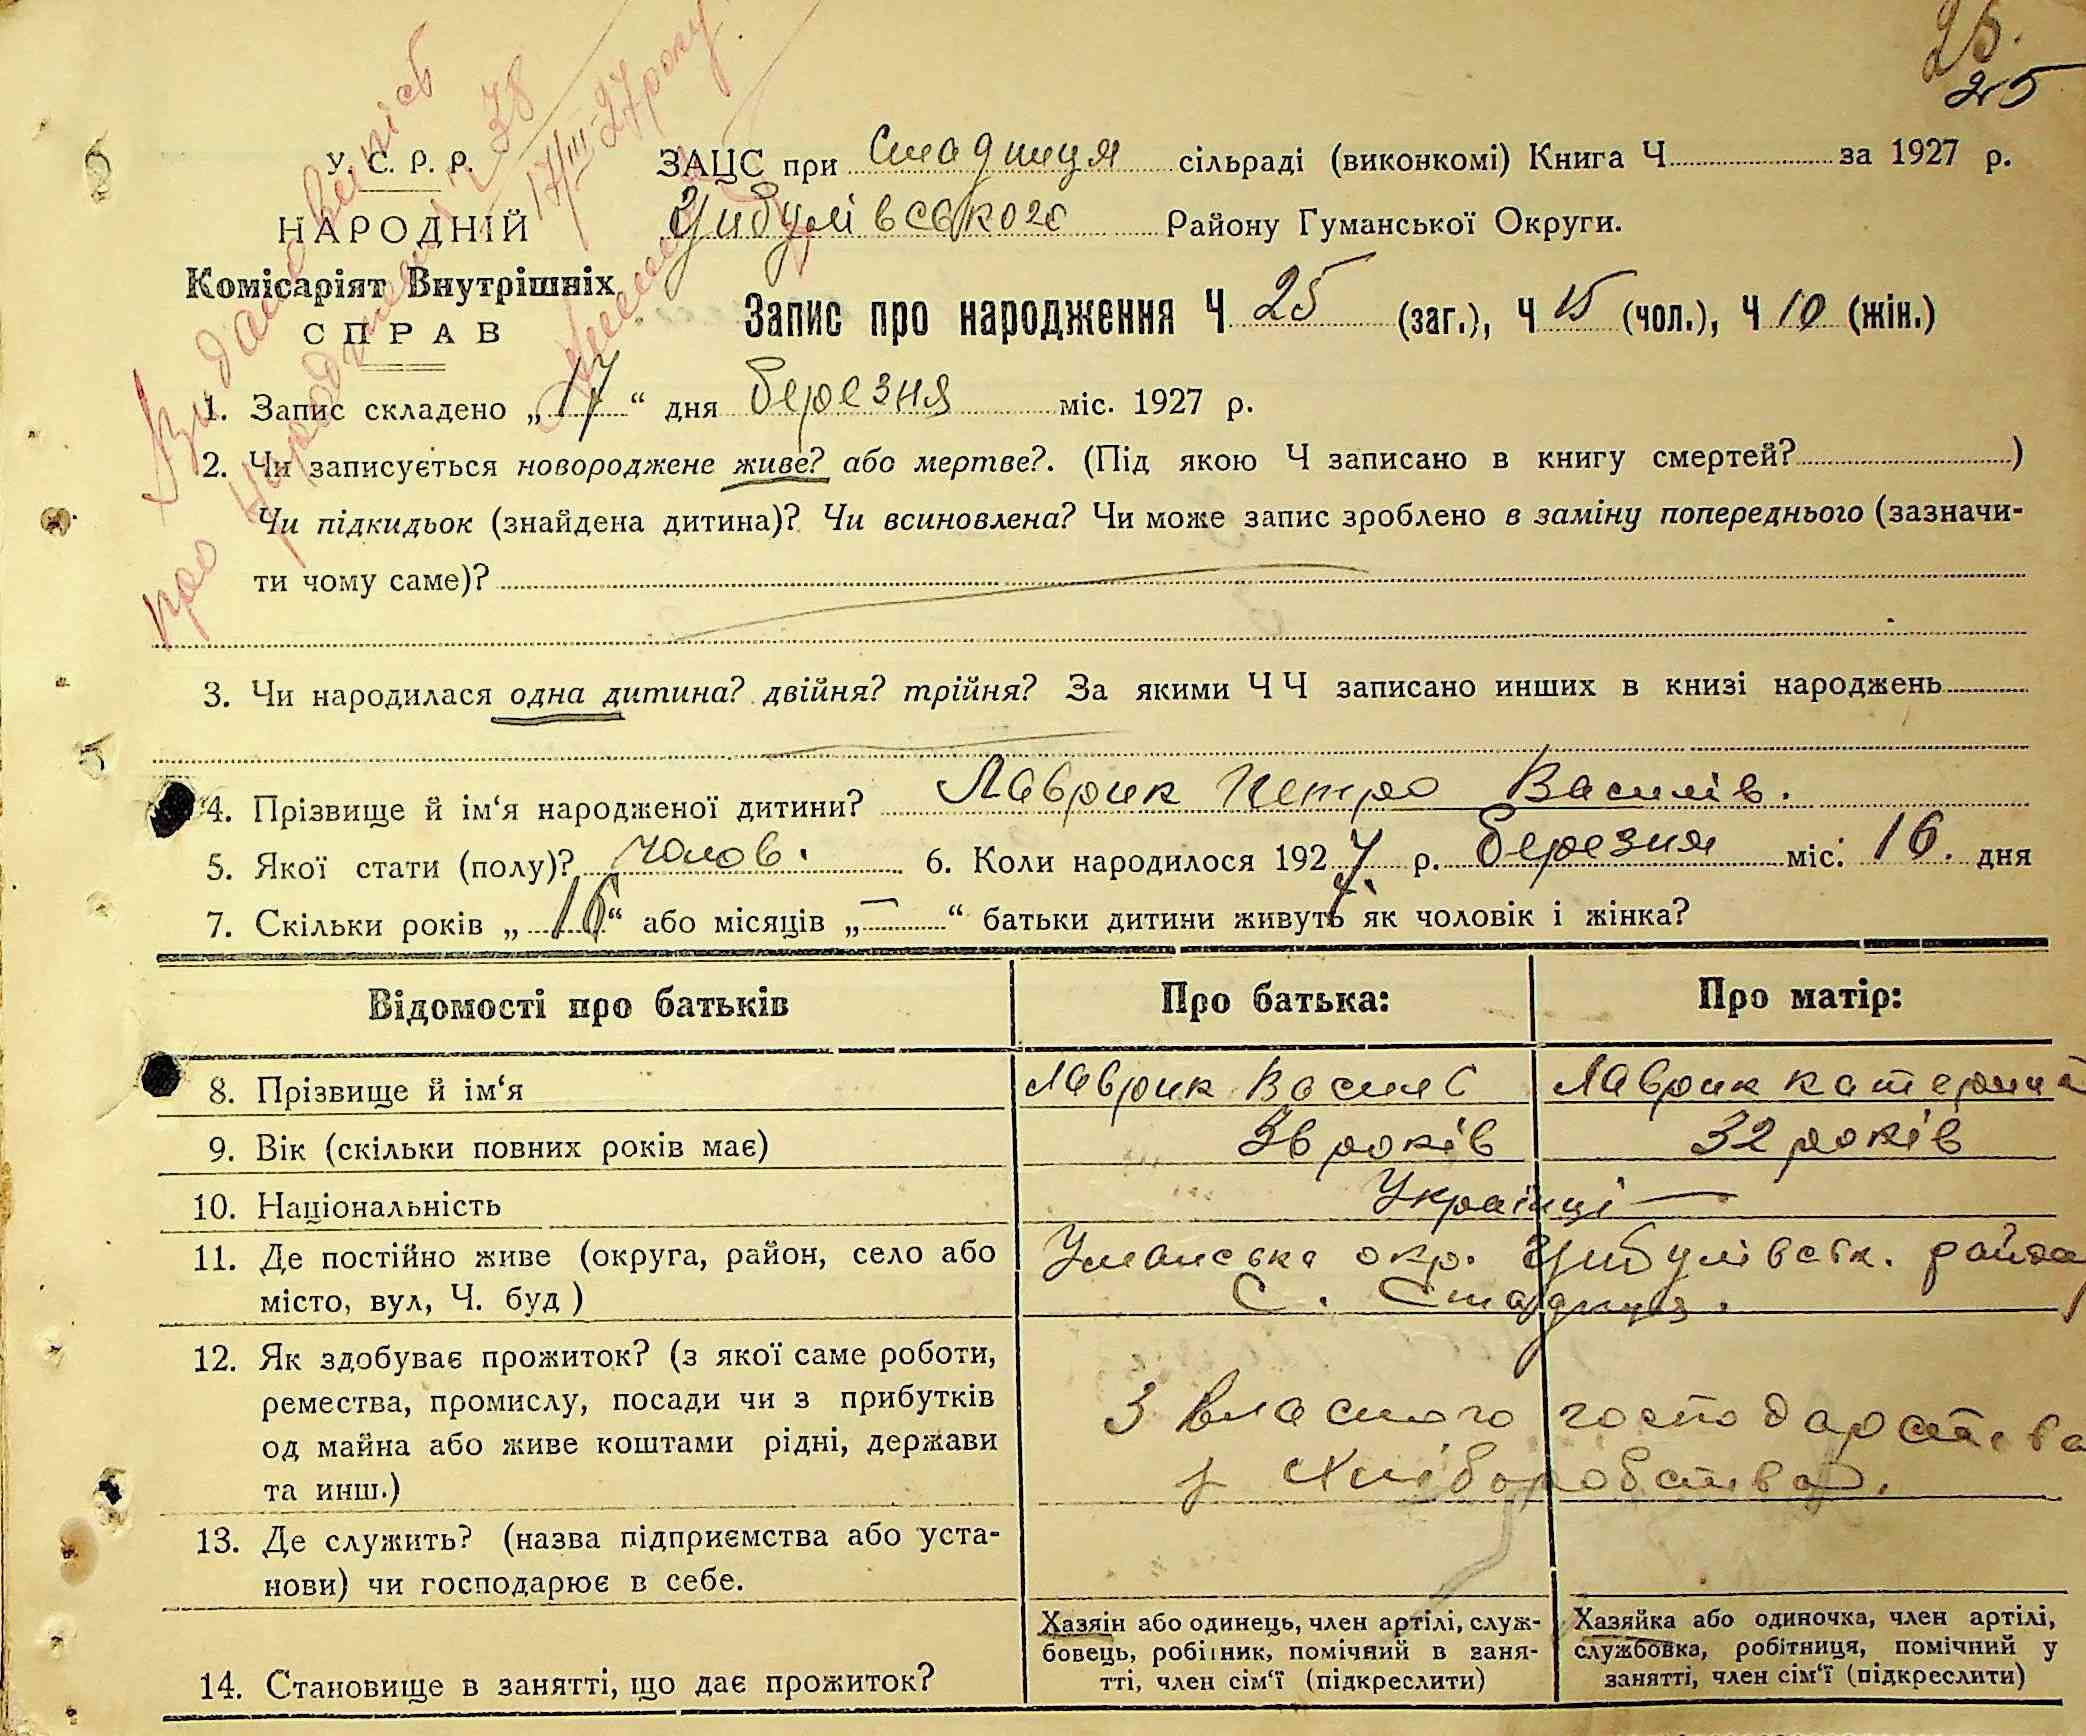 25.
25
Видано випись
про народження Ч 38
17/III-27 року
У. С. Р. Р.
НАРОДНІЙ
Комісаріят Внутрішніх
СПРАВ
ЗАЦС при Стадниця сільраді (виконкомі) Книга Ч. за 1927 р.
Цибулівського Району Гуманської Округи.
Запис про народження Ч 25 (заг.), Ч 15 (чол.), Ч 10 (жін.)
1. Запис складено „17“ дня березня міс. 1927 р.
2. Чи записується новороджене живе? або мертве?. (Під якою Ч записано в книгу смертей? )
Чи підкидьок (знайдена дитина)? Чи всиновлена? Чи може запис зроблено в заміну попереднього (зазначи-
ти чому саме)?
3. Чи народилася одна дитина? двійня? трійня? За якими ЧЧ записано инших в книзі народжень
4. Прізвище й ім‘я народженої дитини? Лаврик Петро Василів.
5. Якої стати (полу)? чолов. 6. Коли народилося 1927 р. березня міс. 16. дня
7. Скільки років „16“ або місяців „—“ батьки дитини живуть як чоловік і жінка?
Відомості про батьків Про батька: Про матір:
8. Прізвище й ім‘я Лаврик Василь Лаврик Катерина
9. Вік (скільки повних років має) 36 років 32 років
10. Національність Українці —
11. Де постійно живе (округа, район, село або Уманська окр. Цибулівськ. район
місто, вул, Ч. буд ) С. Стадниця.
12. Як здобуває прожиток? (з якої саме роботи,
ремества, промислу, посади чи з прибутків З власного господарства
од майна або живе коштами рідні, держави
та инш.) з хліборобства.
13. Де служить? (назва підприємства або уста-
нови) чи господарює в себе.
14. Становище в занятті, що дає прожиток?
Хазяін або одинець, член артілі, служ-
бовець, робітник, помічний в заня-
тті, член сім‘ї (підкреслити)
Хазяйка або одиночка, член артілі,
службовка, робітниця, помічний у
занятті, член сім‘ї (підкреслити)